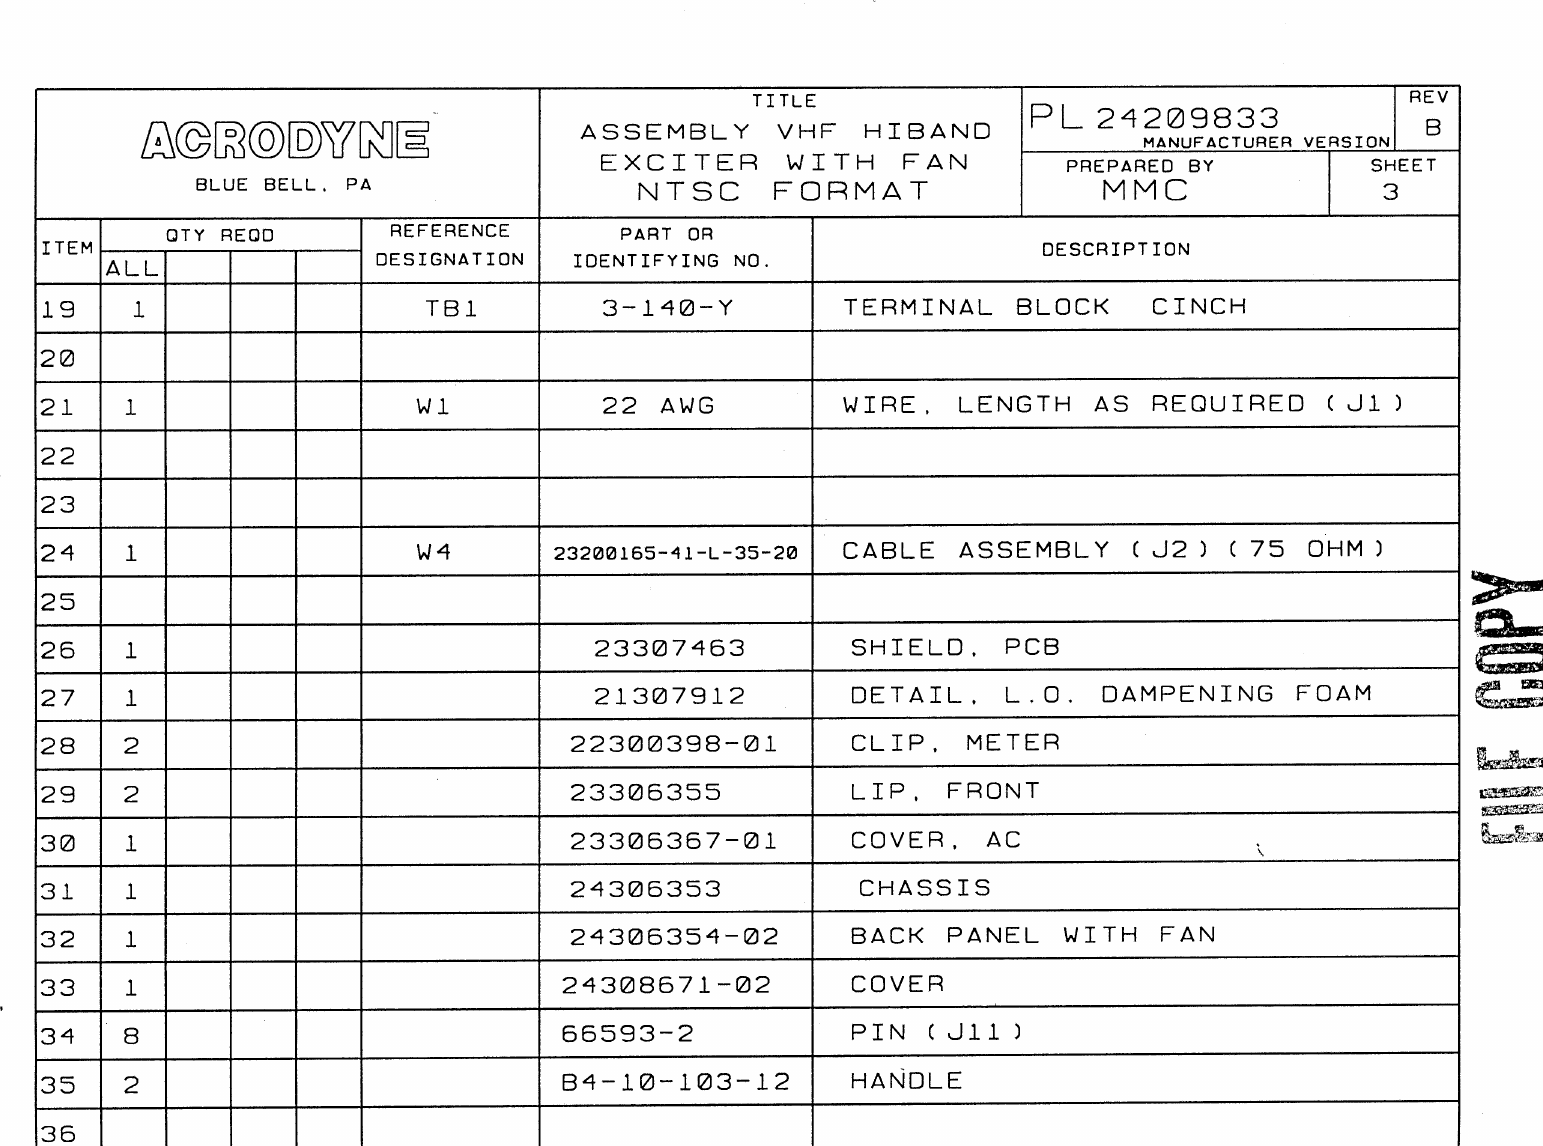 ACRODYNE
BLUE BELL, PA
TITLE
ASSEMBLY VHF HIBAND
EXCITER WITH FAN
NTSC FORMAT
PL 24209833
MANUFACTURER VERSION
REV
B
PREPARED BY
MMC
SHEET
3
ITEM
QTY REQD
ALL
REFERENCE
DESIGNATION
PART OR
IDENTIFYING NO.
DESCRIPTION
19 1 TB1 3-140-Y TERMINAL BLOCK CINCH
20
21 1 W1 22 AWG WIRE, LENGTH AS REQUIRED (J1)
22
23
24 1 W4 23200165-41-L-35-20 CABLE ASSEMBLY (J2) (75 OHM)
25
26 1 23307463 SHIELD, PCB
27 1 21307912 DETAIL, L.O. DAMPENING FOAM
28 2 22300398-01 CLIP, METER
29 2 23306355 LIP, FRONT
30 1 23306367-01 COVER, AC
31 1 24306353 CHASSIS
32 1 24306354-02 BACK PANEL WITH FAN
33 1 24308671-02 COVER
34 8 66593-2 PIN (J11)
35 2 B4-10-103-12 HANDLE
36
FILE COPY